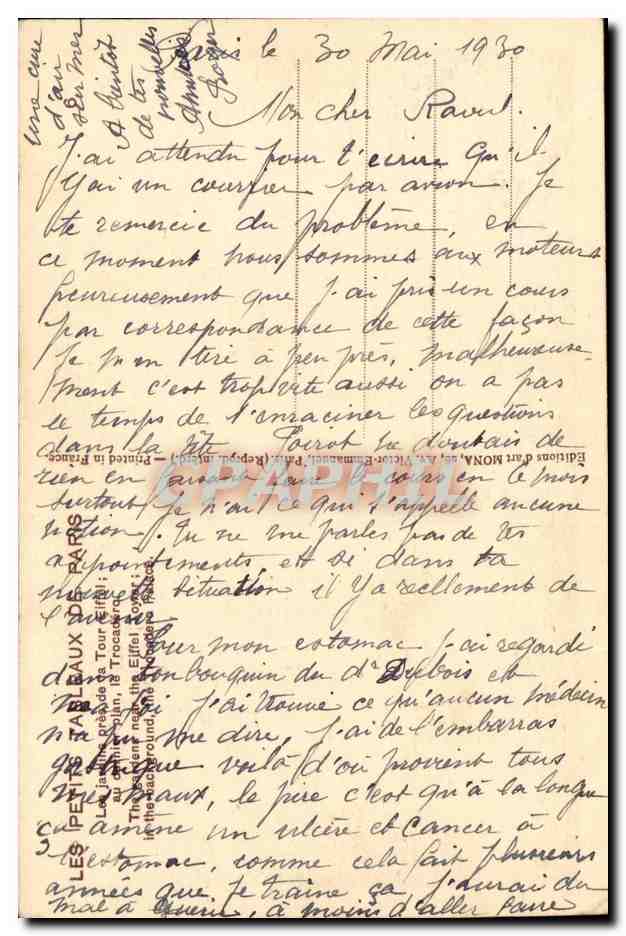 Paris le 30 Mai 1930
Mon cher Raoul.
J'ai attendu pour t'ecrire qu'il
y ai un courrier par avion. Je
te remercie du problème, en
ce moment nous sommes aux moteurs
heureusement que j'ai pris un cours
par correspondance de cette façon
je m'en tire à peu près, malheureuse-
ment c'est trop vite aussi on a pas
le temps de s'enraciner les questions
dans la tête.
rien en faire le cours en le mois
surtout je n'ai ce qui s'appelle aucune
notion. Tu ne me parles pas de tes
appointements, et si dans ta
nouvelle situation il y a reellement de
l'avenir
Pour mon estomac j'ai regardé
dans ton bouquin du dr Dubois et
j'ai trouvé ce qu'aucun médecin
n'a su me dire, j'ai de l'embarras
gastrique voilà d'où provient tous
mes maux, le pire c'est qu'à la longue
ça amène un ulcère et cancer à
l'estomac, comme cela fait plusieurs
années que je traine ça j'aurai du
mal à guérir, à moins d'aller faire
une cure
d'air
sur mer
A bientôt
de tes
nouvelles
Amitiés
Roger
LES PETITS TABLEAUX DE PARIS
Les jardins près de la Tour Eiffel ;
au dernier plan, le Trocadéro.
The gardens near the Eiffel Tower ;
in the background, the Trocadero Palace.
Éditions d'art MONA, 26, Av. Victor-Emmanuel, Paris. (Reprod. interd.) — Printed in France.
CPAPHIL